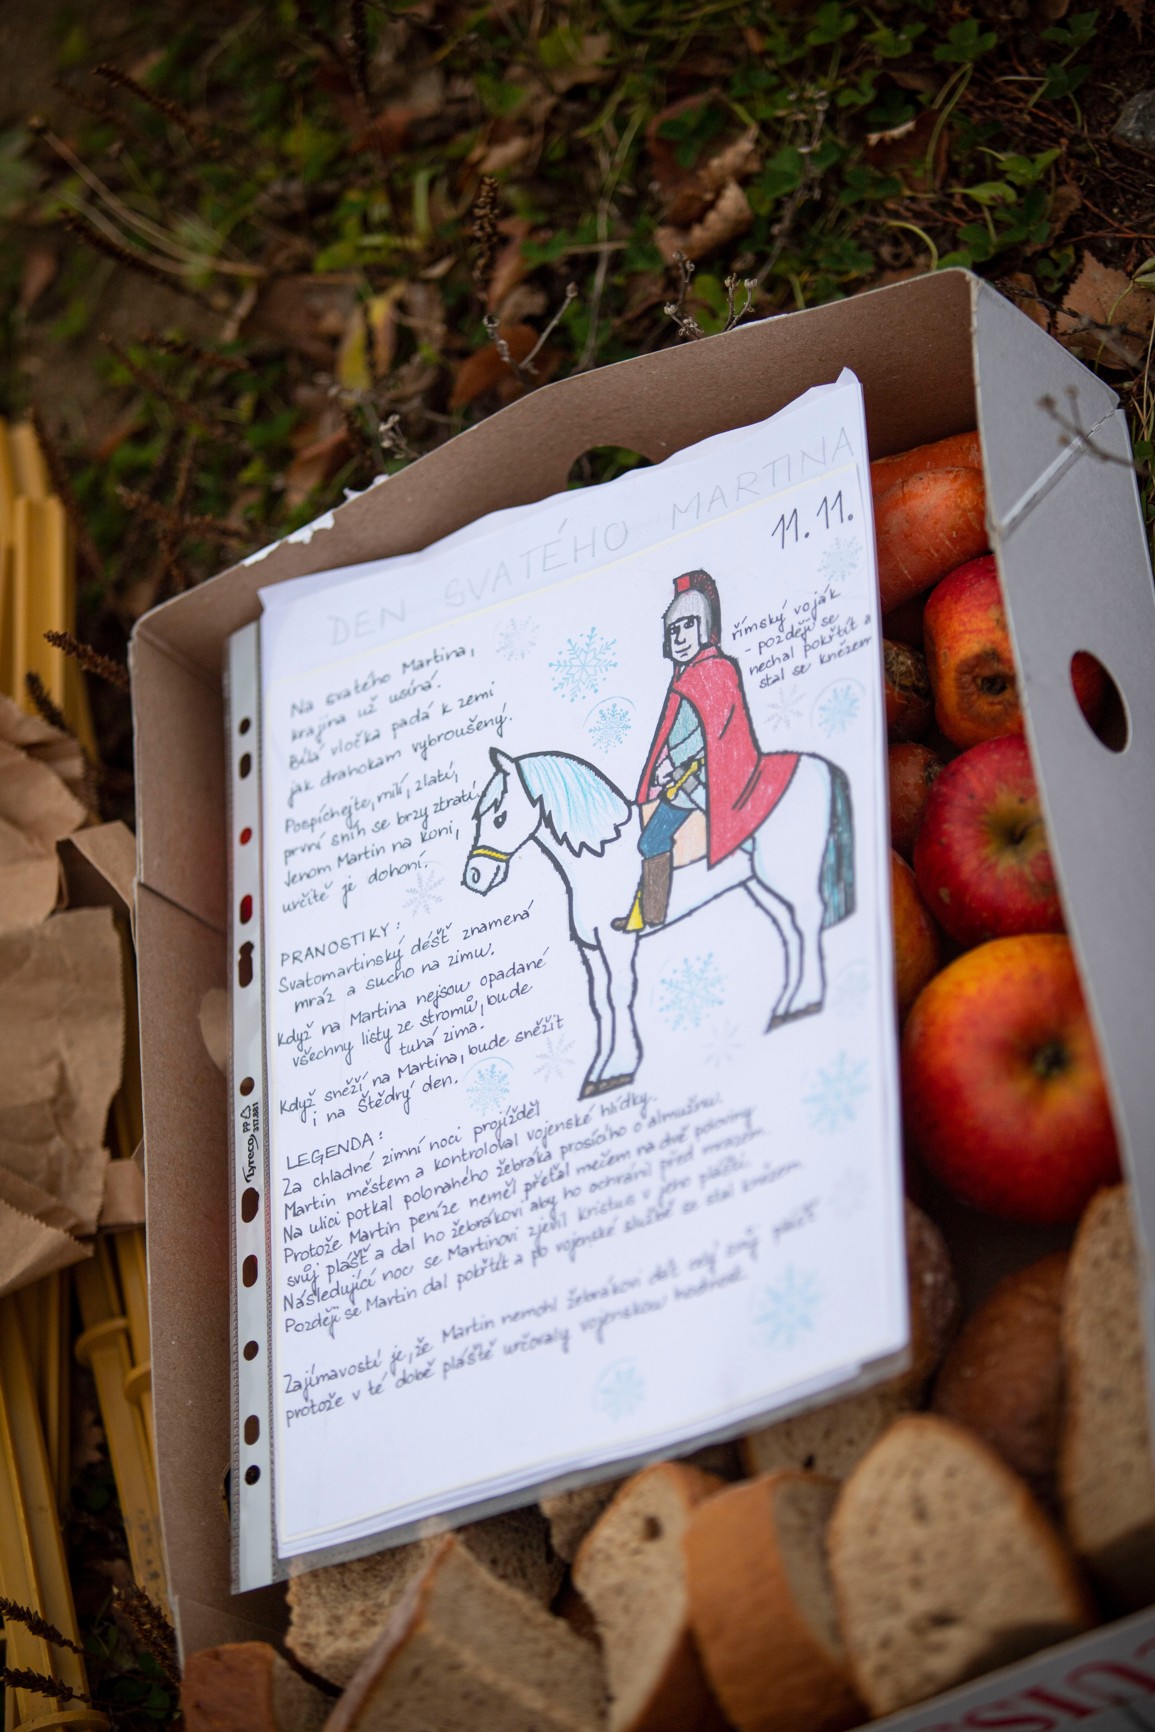 DEN SVATÉHO MARTINA
11.11.
římský voják
- později se
nechal pokřtít a
stal se knězem
Na svatého Martina,
krajina už usíná.
Bílá vločka padá k zemi
jak drahokam vybroušený.
Pospíchejte, milí, zlatí,
první sníh se brzy ztratí.
Jenom Martin na koni,
určitě je dohoní.
PRANOSTIKY:
Svatomartinský déšť znamená
mráz a sucho na zimu.
Když na Martina nejsou opadané
všechny listy ze stromů, bude
tuhá zima.
Když sněží na Martina, bude sněžit
i na Štědrý den.
LEGENDA:
Za chladné zimní noci projížděl
Martin městem a kontroloval vojenské hlídky.
Na ulici potkal polonahého žebráka prosícího o almužnu.
Protože Martin peníze neměl přeťal mečem na dvě poloviny
svůj plášť a dal ho žebrákovi aby ho ochránil před mrazem.
Následující noc se Martinovi zjevil Kristus v jeho plášti.
Později se Martin dal pokřtít a po vojenské službě se stal knězem.
Zajímavostí je, že Martin nemohl žebrákovi dát celý svůj plášť
protože v té době pláště určovaly vojenskou hodnost.
Lyreco PP
317.881